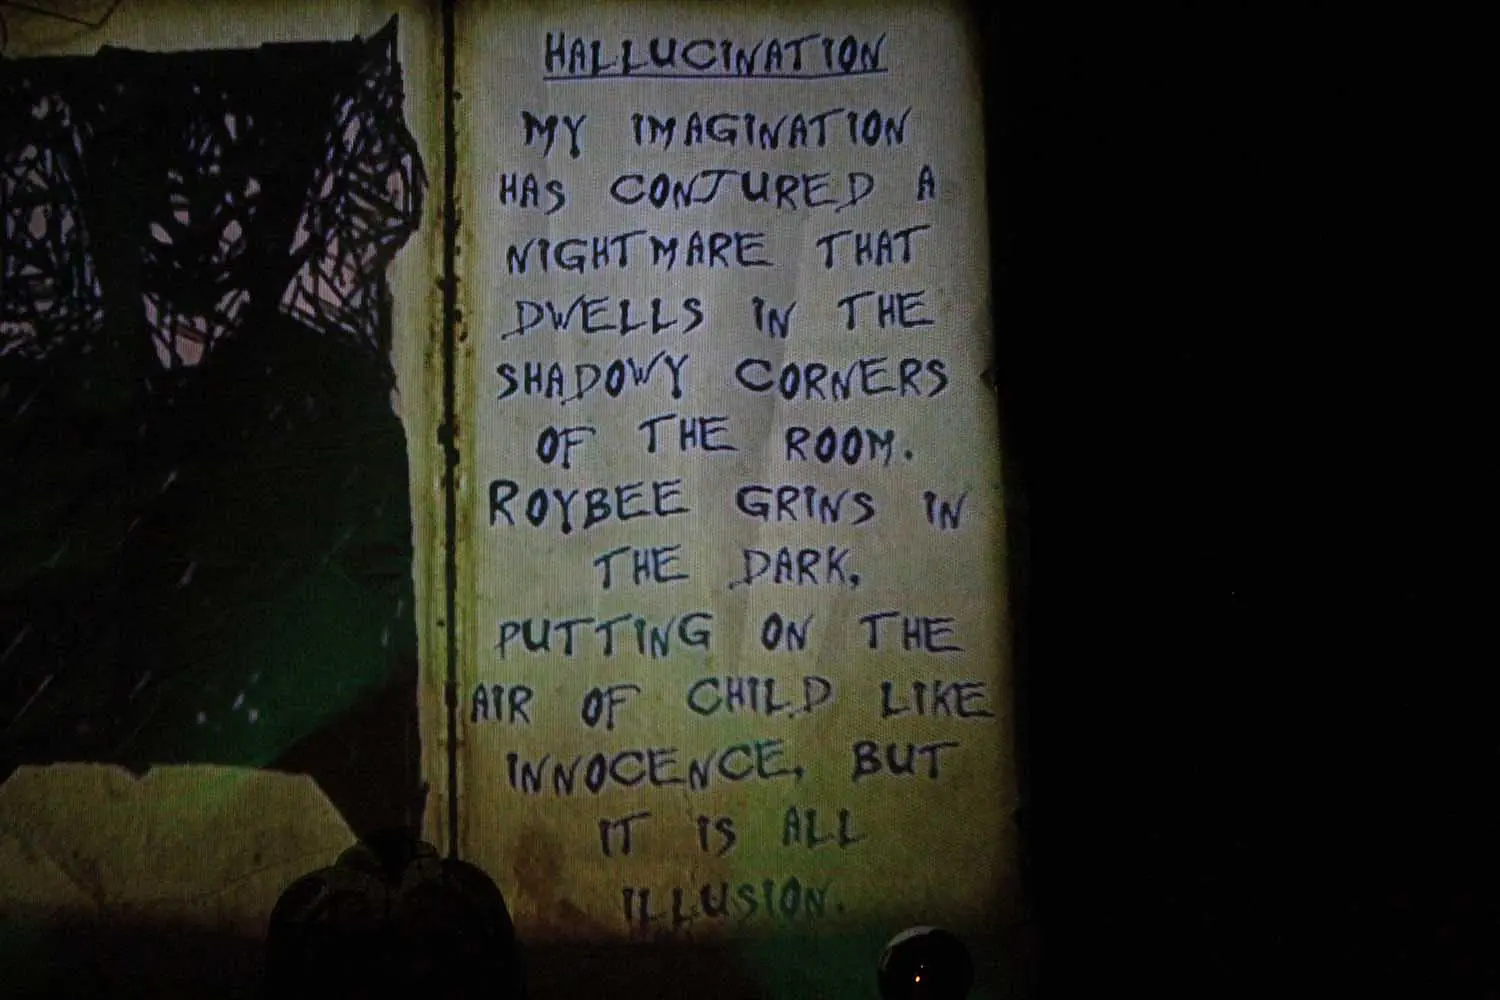 HALLUCINATION
MY IMAGINATION
HAS CONJURED A
NIGHTMARE THAT
DWELLS IN THE
SHADOWY CORNERS
OF THE ROOM.
ROYBEE GRINS IN
THE DARK,
PUTTING ON THE
AIR OF CHILD LIKE
INNOCENCE, BUT
IT IS ALL
ILLUSION.